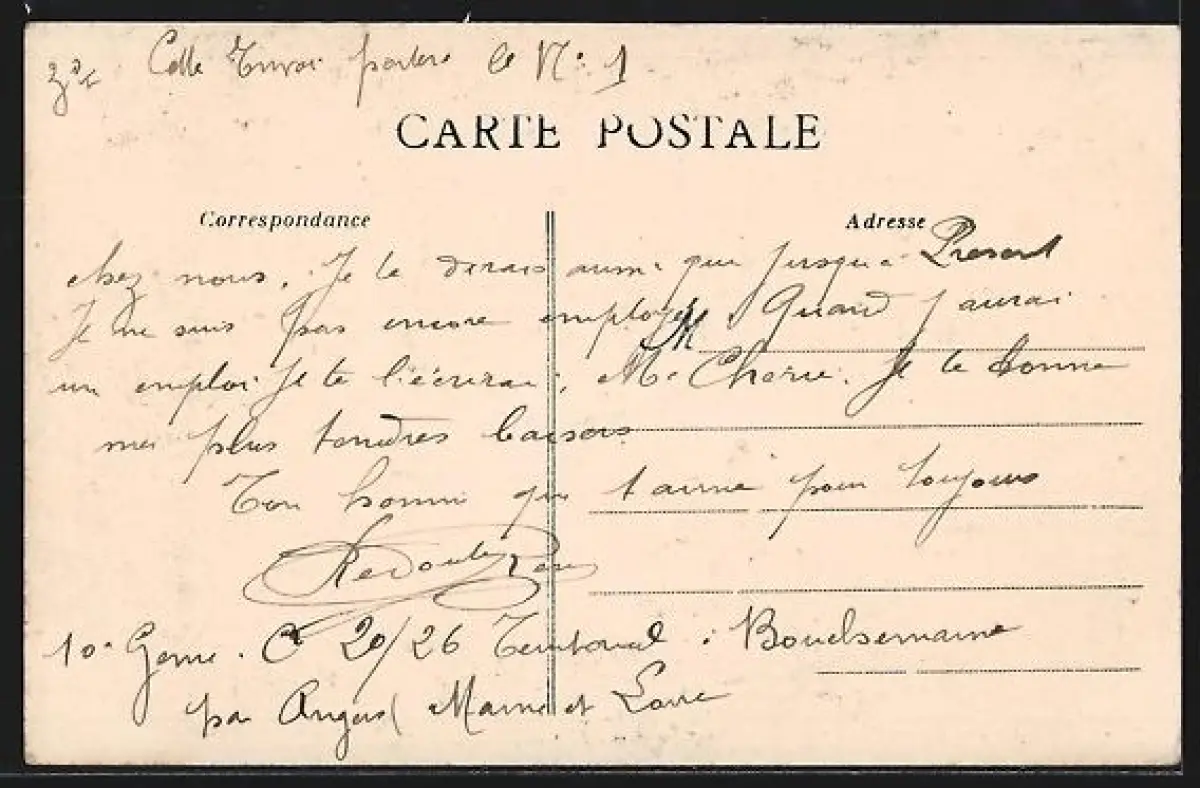 3e Cette Envoi portera le No 1
CARTE POSTALE
Correspondance
Adresse
chez nous. Je te dirais aussi que jusqu'a Present
Je ne suis pas encore employé. Quand j aurai
M
un emploi Je te l'écrirai, Ma Cherie. Je te donne
mes plus tendres baisers
Ton homme qui t aime pour toujours
10e Genie. Cie 20/26 Territorial. Bouchemaine
par Angers Maine et Loire